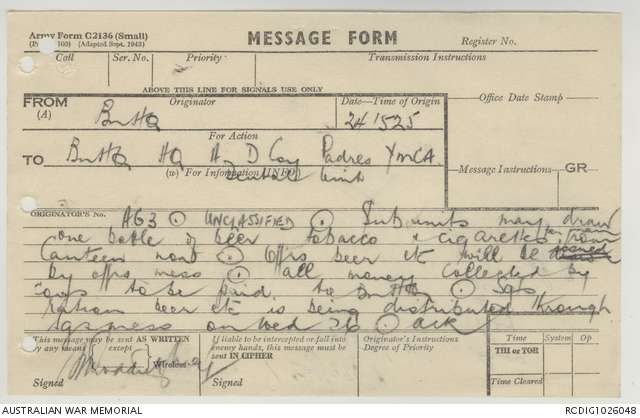 Army Form C2136 (Small)
(Adapted Sept. 1943)
MESSAGE FORM
Register No.
Call Ser. No. Priority Transmission Instructions
ABOVE THIS LINE FOR SIGNALS USE ONLY
FROM Originator Date—Time of Origin Office Date Stamp
(A) BnHQ 241525
For Action
TO BnHQ HQ A D Coy Padres YMCA
(w) For Information (INFO) Message Instructions GR
ORIGINATOR'S No.
A63 ⊙ UNCLASSIFIED ⊙ Sub units may draw
one bottle of beer tobacco & cigarettes from
Canteen now ⊙ Offrs beer etc will be
by offrs mess ⊙ all money collected by
to be paid to BnHQ ⊙ Sgts
ration beer etc is being distributed through
sgs mess on Wed 26 ⊙ ack
This message may be sent AS WRITTEN
by any means except Wireless
Signed
If liable to be intercepted or fall into
enemy hands, this message must be
sent IN CIPHER
Signed
Originator's Instructions
Degree of Priority
Time System Op
THI or TOR
Time Cleared
AUSTRALIAN WAR MEMORIAL
RCDIG1026048